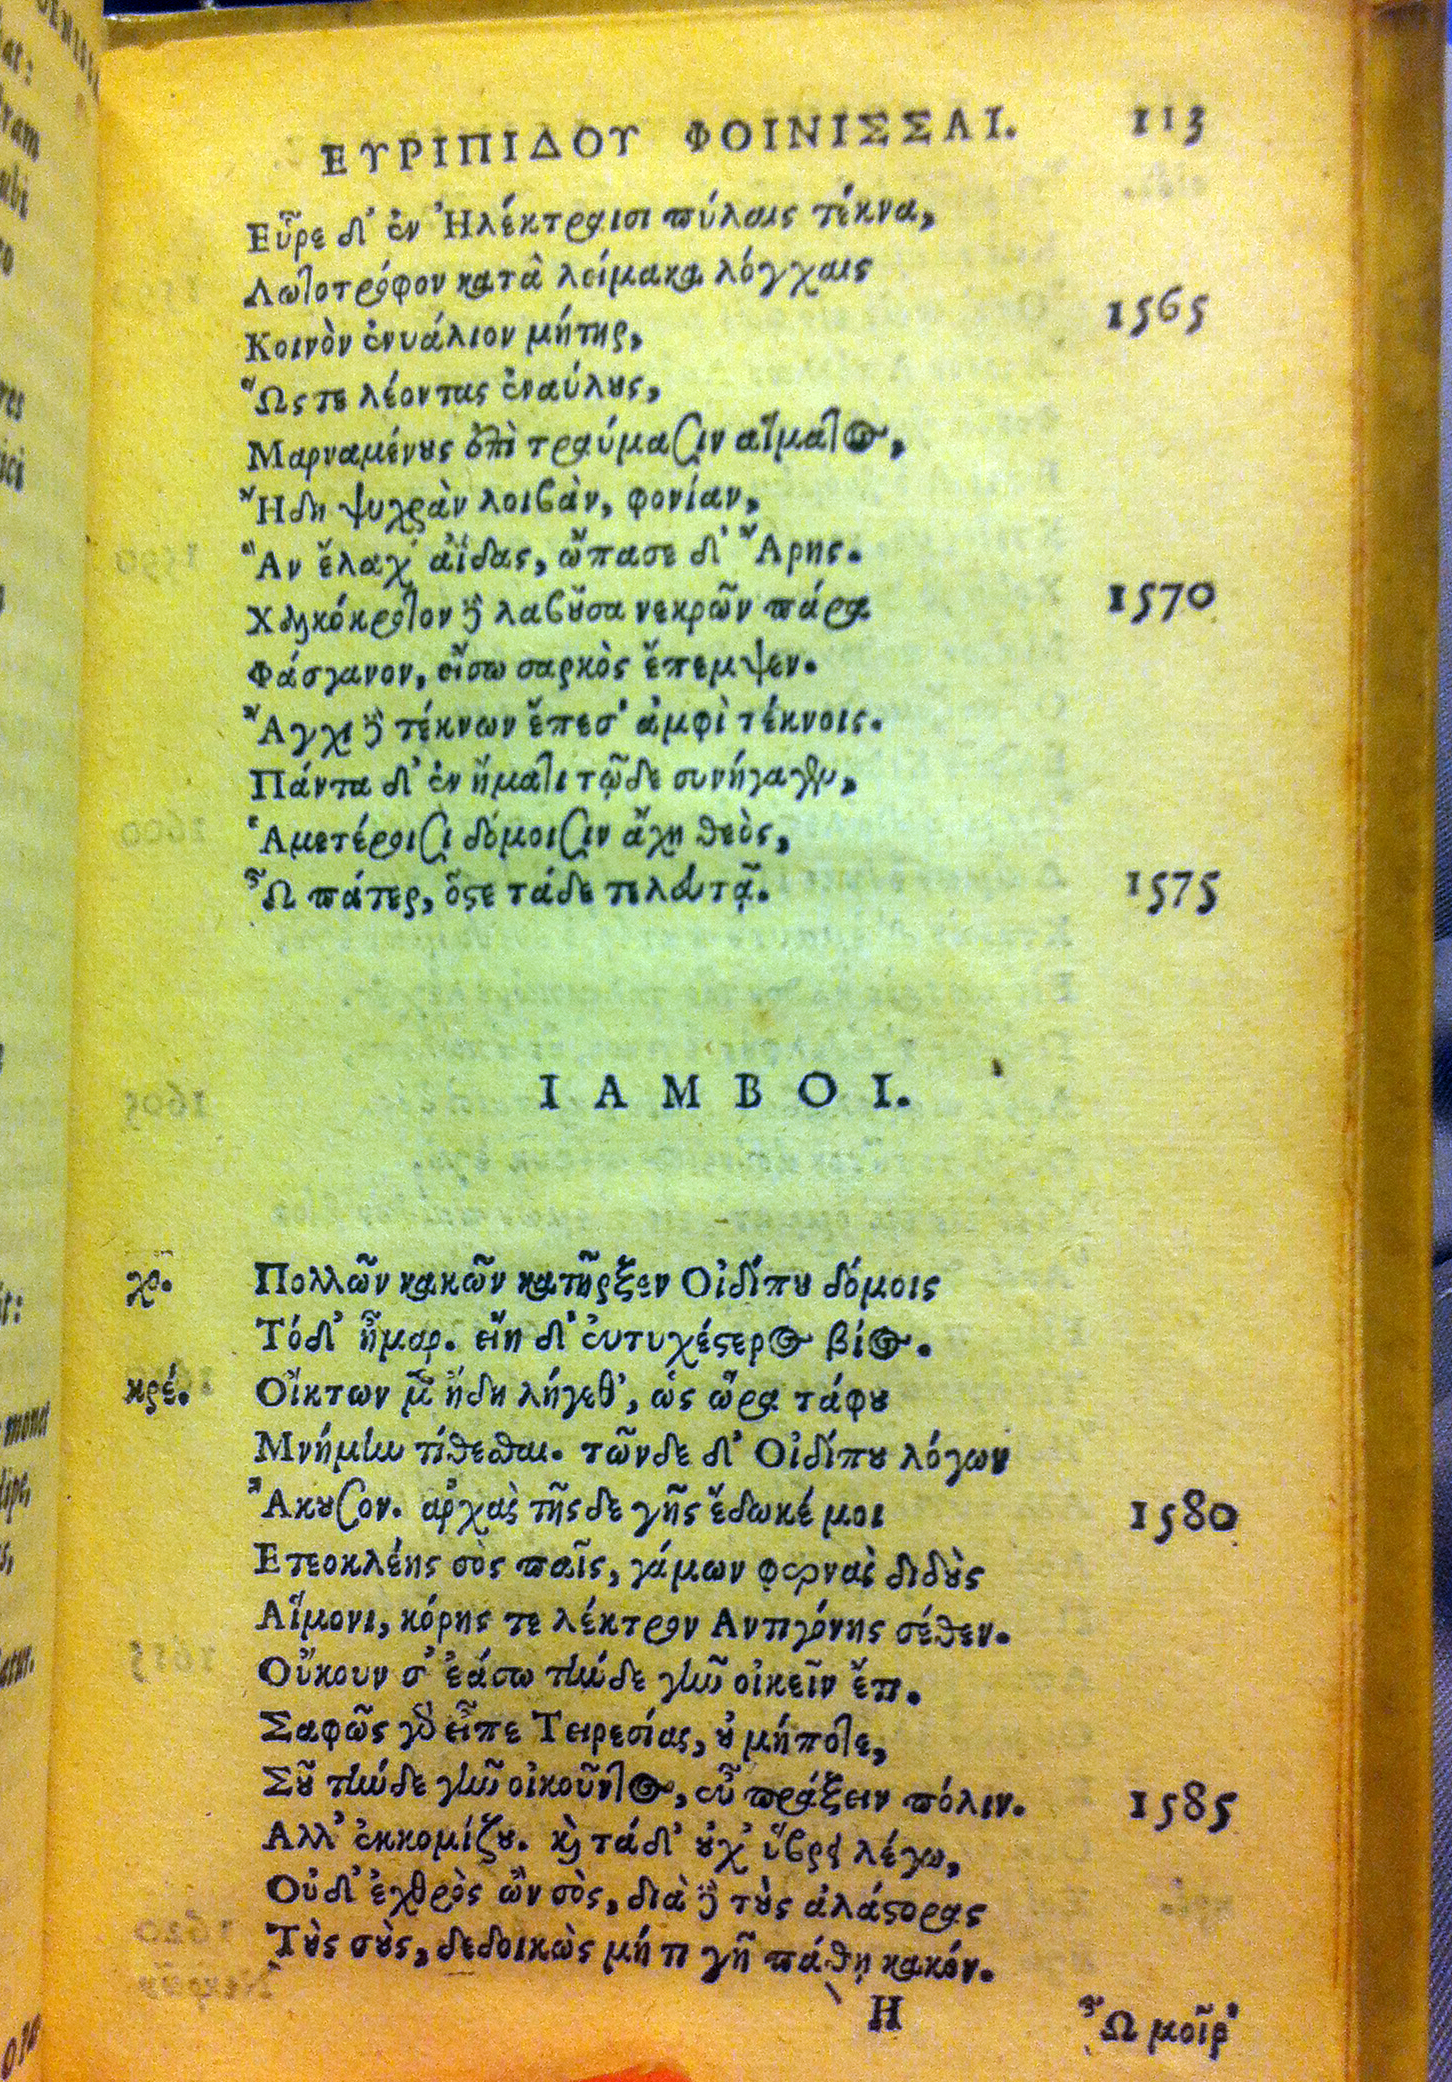 ΕΥΡΙΠΙΔΟΥ ΦΟΙΝΙΣΣΑΙ. 113
Εὗρε δ' ἐν Ἠλέκτραισι πύλαις τέκνα,
Λωτοτρόφον κατὰ λείμακα λόγχαις
Κοινὸν ἐνυάλιον μήτηρ, 1565
Ὥς τε λέοντας ἐναύλους,
Μαρναμένους ἐπὶ τραύμασιν αἵματος,
Ἤδη ψυχρὰν λοιβὰν, φονίαν,
Ἃν ἔλαχ' ἀΐδας, ὤπασε δ' Ἄρης.
Χαλκόκροτον δὲ λαβοῦσα νεκρῶν πάρα 1570
Φάσγανον, εἴσω σαρκὸς ἔπεμψεν.
Ἄγχι δὲ τέκνων ἔπεσ' ἀμφὶ τέκνοις.
Πάντα δ' ἐν ἤματι τῷδε συνήγαγεν,
Ἁμετέροισι δόμοισιν ἄχη θεὸς,
Ὦ πάτερ, ὅστε τάδε τελευτᾷ. 1575
ΙΑΜΒΟΙ.
χο. Πολλῶν κακῶν κατῆρξεν Οἰδίπου δόμοις
Τόδ' ἦμαρ. εἴη δ' εὐτυχέστερος βίος.
κρέ. Οἴκτων μὲν ἤδη λήγεθ', ὡς ὥρα τάφου
Μνήμην τίθεσθαι. τῶνδε δ' Οἰδίπου λόγων
Ἄκουσον. ἀρχὰς τῆςδε γῆς ἔδωκέ μοι 1580
Ετεοκλέης σὸς παῖς, γάμων φερνὰς διδοὺς
Αἵμονι, κόρης τε λέκτρον Αντιγόνης σέθεν.
Οὔκουν σ' ἐάσω τήνδε γῆν οἰκεῖν ἔτι.
Σαφῶς γὰρ εἶπε Τειρεσίας, οὐ μήποτε,
Σοῦ τήνδε γῆν οἰκοῦντος, εὖ πράξειν πόλιν. 1585
Αλλ' ἐκκομίζου. καὶ τάδ' οὐχ' ὕβρει λέγω,
Οὐδ' ἐχθρὸς ὢν σὸς, διὰ δὲ τοὺς ἀλάστορας
Τοὺς σοὺς, δεδοικὼς μή τι γῆ πάθῃ κακόν.
Η Ὦ μοῖρ'